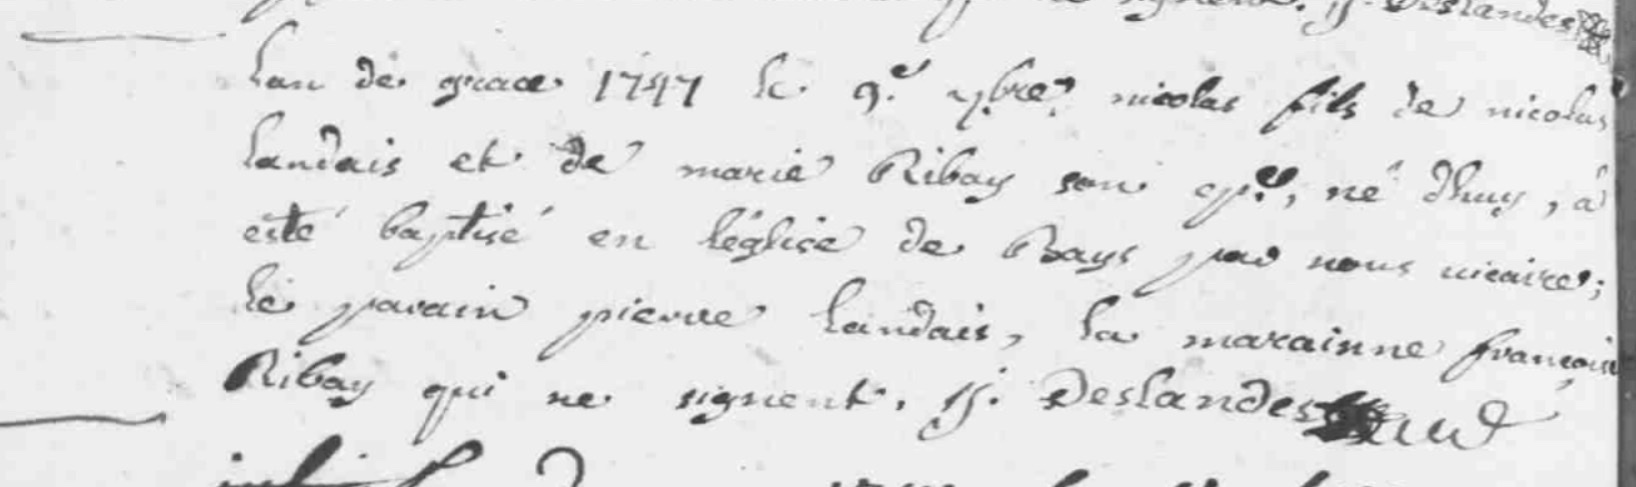 signent. J. Deslandes
lan de grace 1747 le 9.e 7.bre nicolas fils de nicolas
landais et de marie Ribay son ep.e, né dhuy, a
esté baptisé en léglise de Bays par nous vicaire;
le parain pierre landais, la marainne françoise
Ribay qui ne signent. J. Deslandes